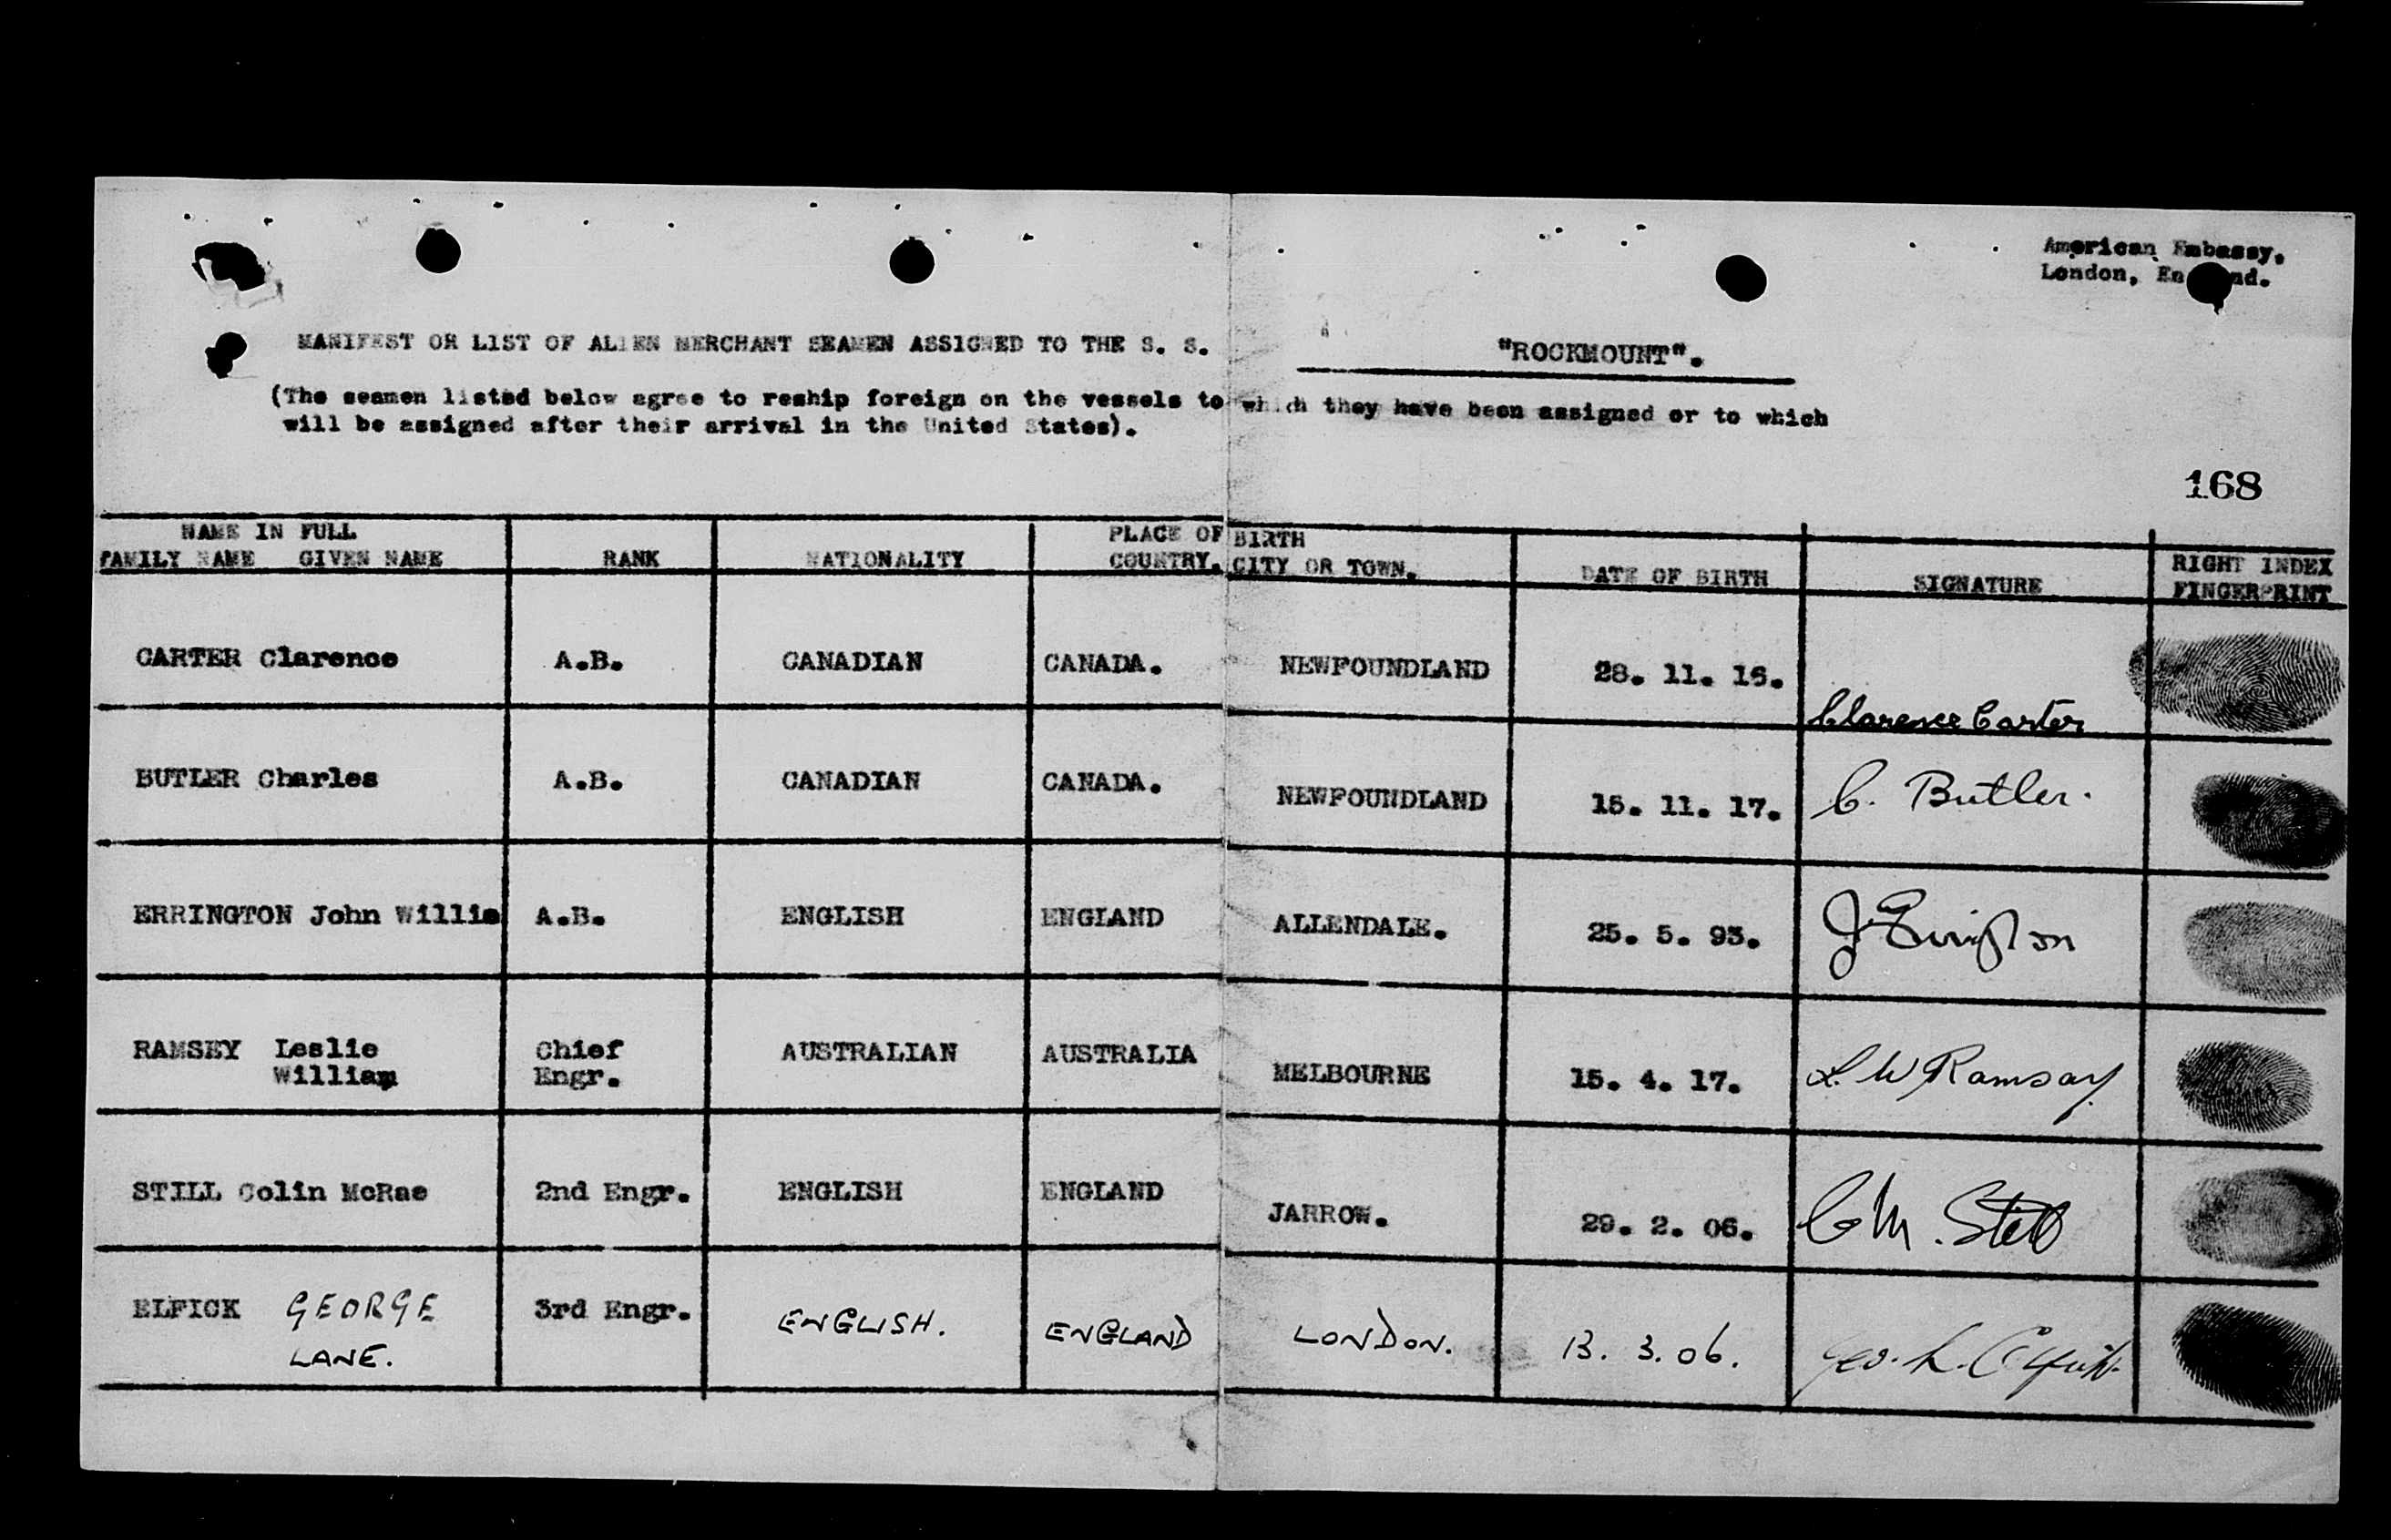 American Embassy,
London, England.
MANIFEST OR LIST OF ALIEN MERCHANT SEAMEN ASSIGNED TO THE S. S. "ROCKMOUNT".
(The seamen listed below agree to reship foreign on the vessels to which they have been assigned or to which
will be assigned after their arrival in the United States).
168
NAME IN FULL PLACE OF BIRTH RIGHT INDEX
FAMILY NAME GIVEN NAME RANK NATIONALITY COUNTRY. CITY OR TOWN. DATE OF BIRTH SIGNATURE FINGERPRINT
CARTER Clarence A.B. CANADIAN CANADA. NEWFOUNDLAND 28. 11. 16. Clarence Carter
BUTLER Charles A.B. CANADIAN CANADA. NEWFOUNDLAND 15. 11. 17. C. Butler.
ERRINGTON John Willis A.B. ENGLISH ENGLAND ALLENDALE. 25. 5. 93. J. Errington
RAMSEY Leslie Chief AUSTRALIAN AUSTRALIA MELBOURNE 15. 4. 17. L. W Ramsay.
William Engr.
STILL Colin McRae 2nd Engr. ENGLISH ENGLAND JARROW. 29. 2. 06. C M. Still
ELFICK GEORGE 3rd Engr. ENGLISH. ENGLAND LONDON. 13. 3. 06. Geo. L. Elfick
LANE.